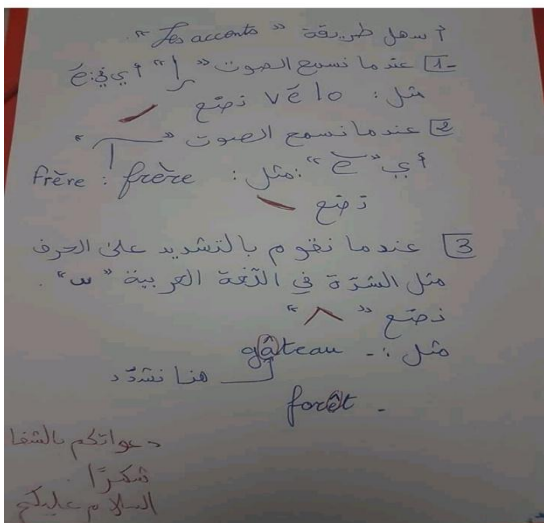 أسهل طريقة "Les accents":
1- عندما نسمع الصوت "إ" أي في é
مثل: vélo نضع /
2 عندما نسمع الصوت "آ"
أي "è": مثل: frère : frère
نضع \
3 عندما نقوم بالتشديد على الحرف
مثل الشدّة في اللّغة العربية "ّ".
نضع "^"
مثل :- gâteau
هنا نشدّد
forêt -
دعواتكم بالشفا
شكرًا
السلام عليكم